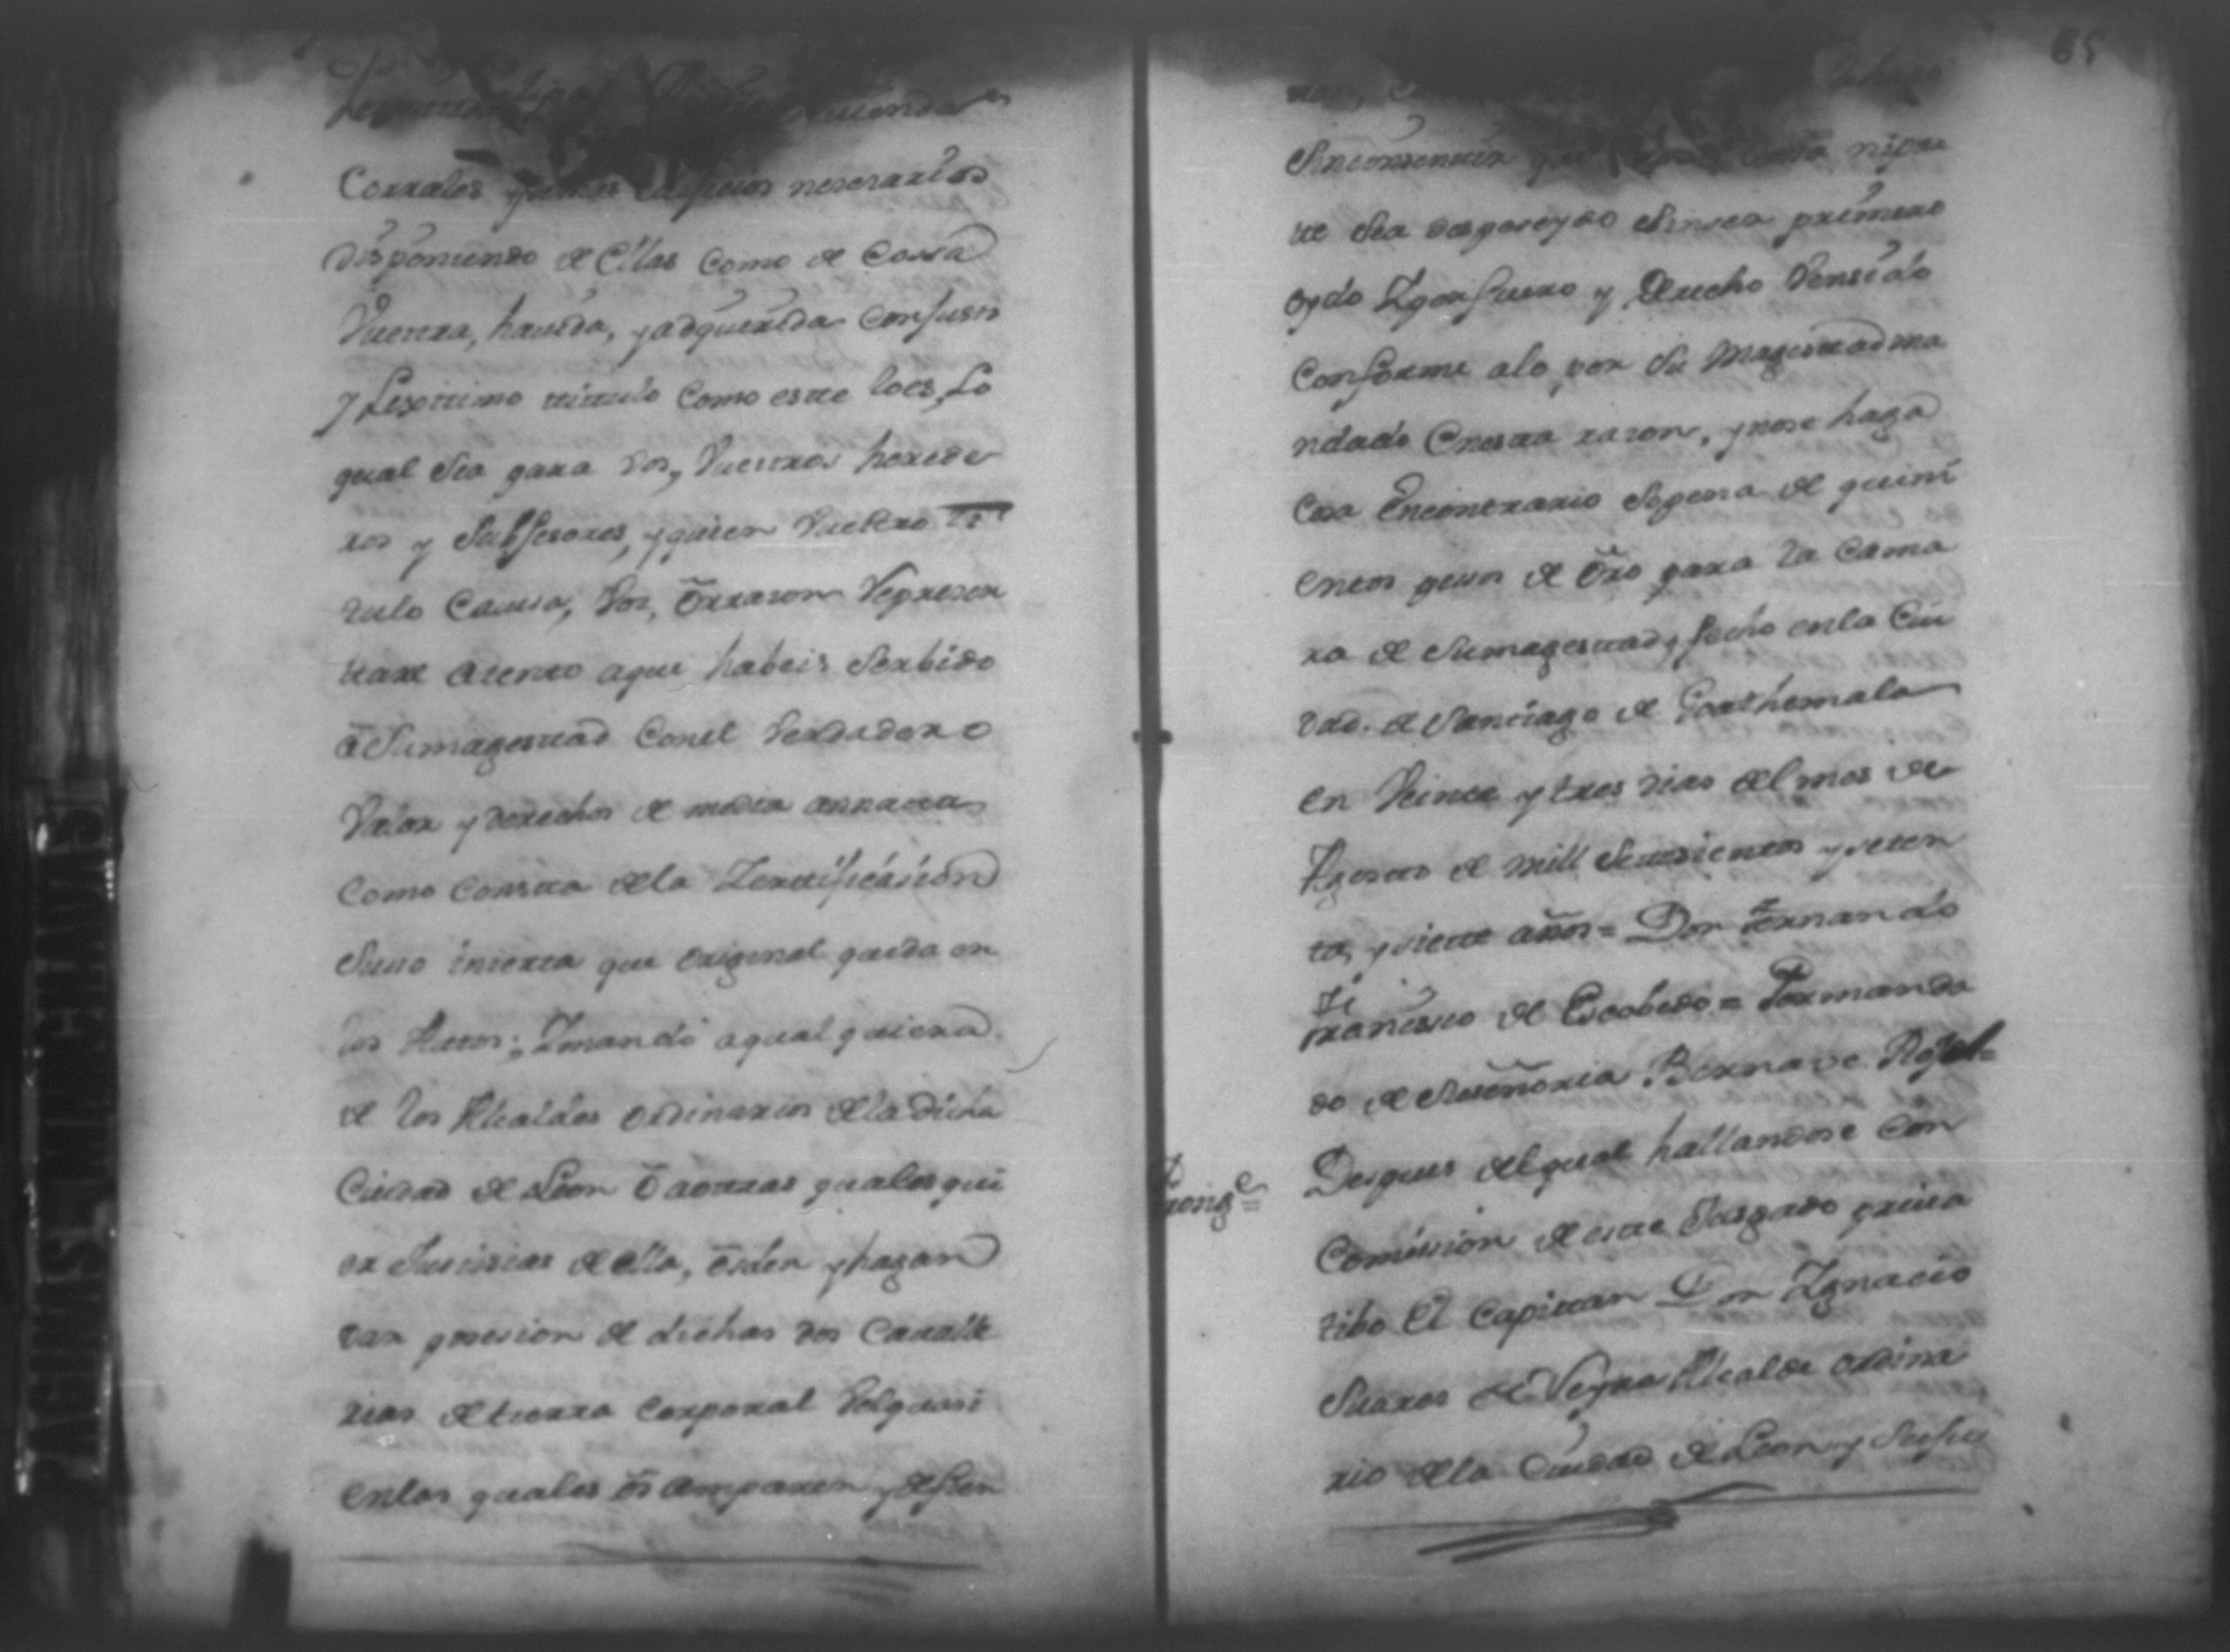 Corrales y demas edificios nesesarios
disponiendo de ellas como de Cossa
Vuestra, hauida, y adquirida con justo
y Lexitimo titulo como este loes, Lo
qual Sea para Vos, Vuestros herede
ros y Subsesores, y quien Vuestro ti
tulo Causa, Vos, õ rrason Represen
tare atento aque habeis Serbido
â Sumagestad Conel Verdadero
Valor y derechos de media annata
Como Consta dela Zertificásion
Suso inserta que original queda en
los Autos; Y mando aqual quiera
de los Alcaldes ordinarios dela dicha
Ciudad de Leon õ a otras quales qui
er Justisias de ella, õs den y hagan
dar posesion de dichas dos Caualle
rias de tierra Corporal Velquasi
enlas quales õs amparen y defien
85
Sinconsentir que
te Sea desposeydo Sinser primero
oydo Y por fuero y Derecho Vensido
Conforme alo por Su Magestad ma
ndado Enesta razon, y nose haga
Cosa Encontrario Sopena de quini
entos pesos de Õro para la Cama
ra de Sumagestad, fecho enla Ciu
dad. de Santiago de Goathemala
en Veinte y tres dias del mes de
Agosto de mill Seissientos y seten
ta, y siete años = Don Fernando
Fransisco de Escobedo = Por manda
do de Suseñoria Bernave Rojel=
Prosigᵉ
Despues delqual hallandose Con
Comission de este Jusgado priua
tibo El Capittan Don Ygnacio
Suares de Neyra Alcalde ordina
rio dela Ciudad de Leon y Sufu